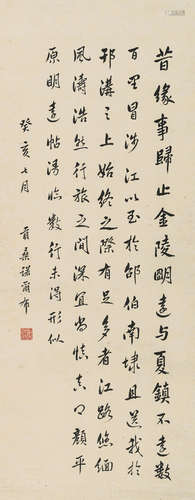 昔緣事歸止金陵明遠與夏鎮不遠數
百里冒涉江以至於邵伯南埭且送我於
邗溝之上始終之際有足多者江路悠緬
風濤浩然行旅之間深宜尚慎真卿顏平
原明遠帖臨數行未得形似
癸亥七月 貢桑諾爾布